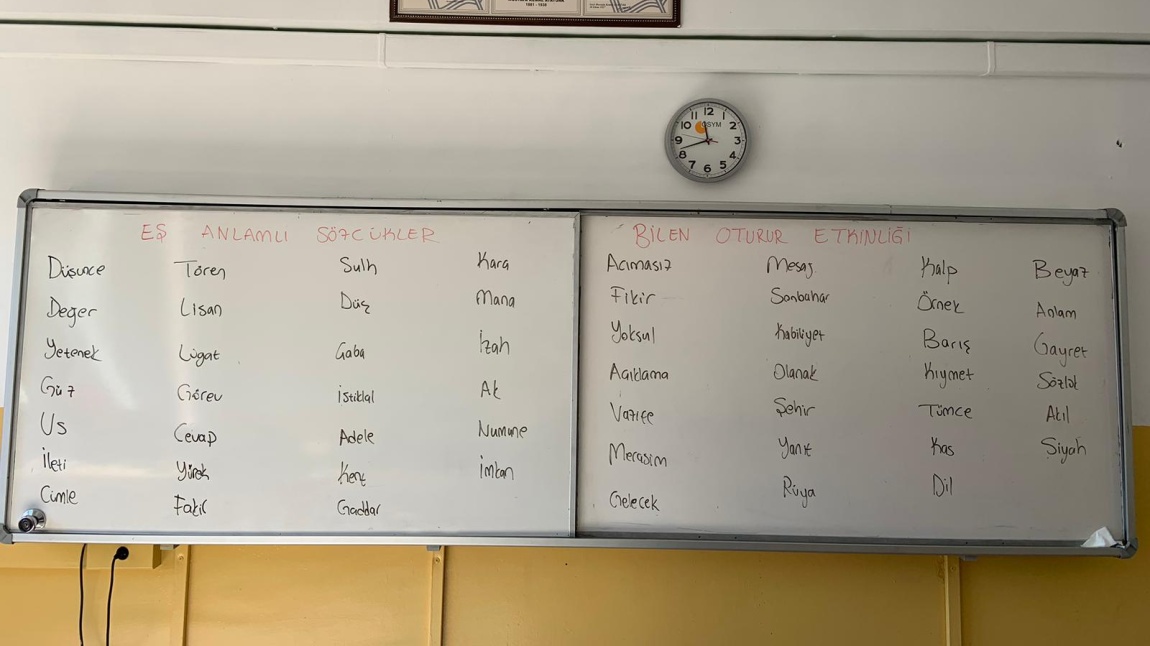 1881 - 1938
12
11 1
10 ÖSYM 2
9 3
8 4
7 6 5
EŞ ANLAMLI SÖZCÜKLER
Düşünce Tören Sulh Kara
Değer Lisan Düş Mana
Yetenek Lügat Gaba İzah
Güz Görev istiklal Ak
Us Cevap Adele Numune
İleti Yürek Kent İmkan
Cümle Fakir Gaddar
BİLEN OTURUR ETKİNLİĞİ
Acımasız Mesaj Kalp Beyaz
Fikir Sonbahar Örnek Anlam
Yoksul Kabiliyet Barış Gayret
Açıklama Olanak Kıymet Sözlük
Vazife Şehir Tümce Akıl
Merasim Yanıt Kas Siyah
Gelecek Rüya Dil